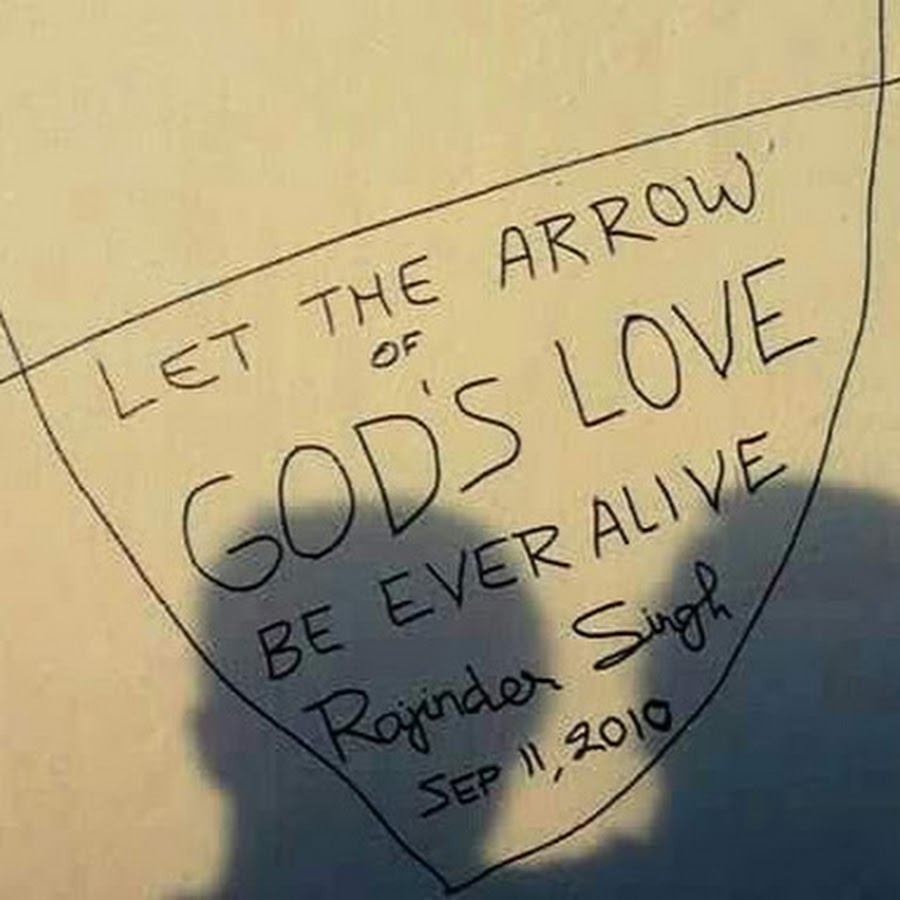 LET THE ARROW
OF
GOD'S LOVE
BE EVER ALIVE
Rajinder Singh
SEP 11, 2010